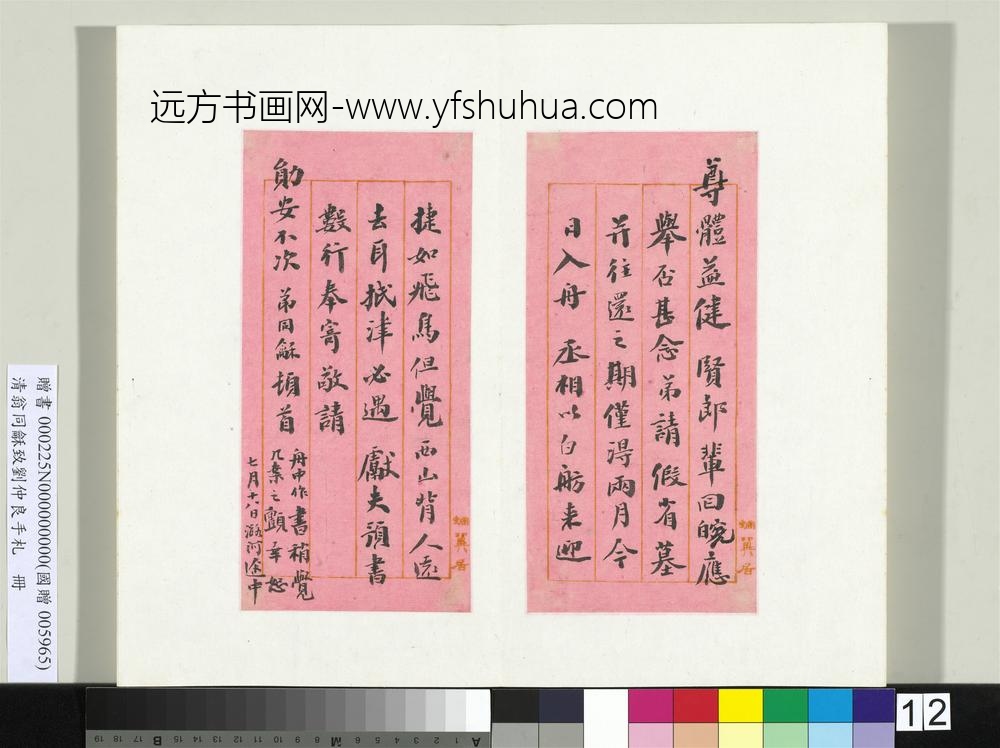 远方书画网-www.yfshuhua.com
尊體益健 賢郎輩回皖應
舉否甚念弟請假省墓
并往還之期僅得兩月今
日入舟 丞相以白舫来迎
捷如飛馬但覺西山背人遠
去耳抵津必遇 獻夫預書
數行奉寄敬請
勛安不次 弟同龢頓首
舟中作書稍覺
几案之顫幸恕
七月十八日潞河途中
贈書 000225N000000000(國贈 005965)
清翁同龢致劉仲良手札 冊
12
19 18 17 16 15 14 13 12 11 10 9 8 7 6 5 4 3 2 1
B M A